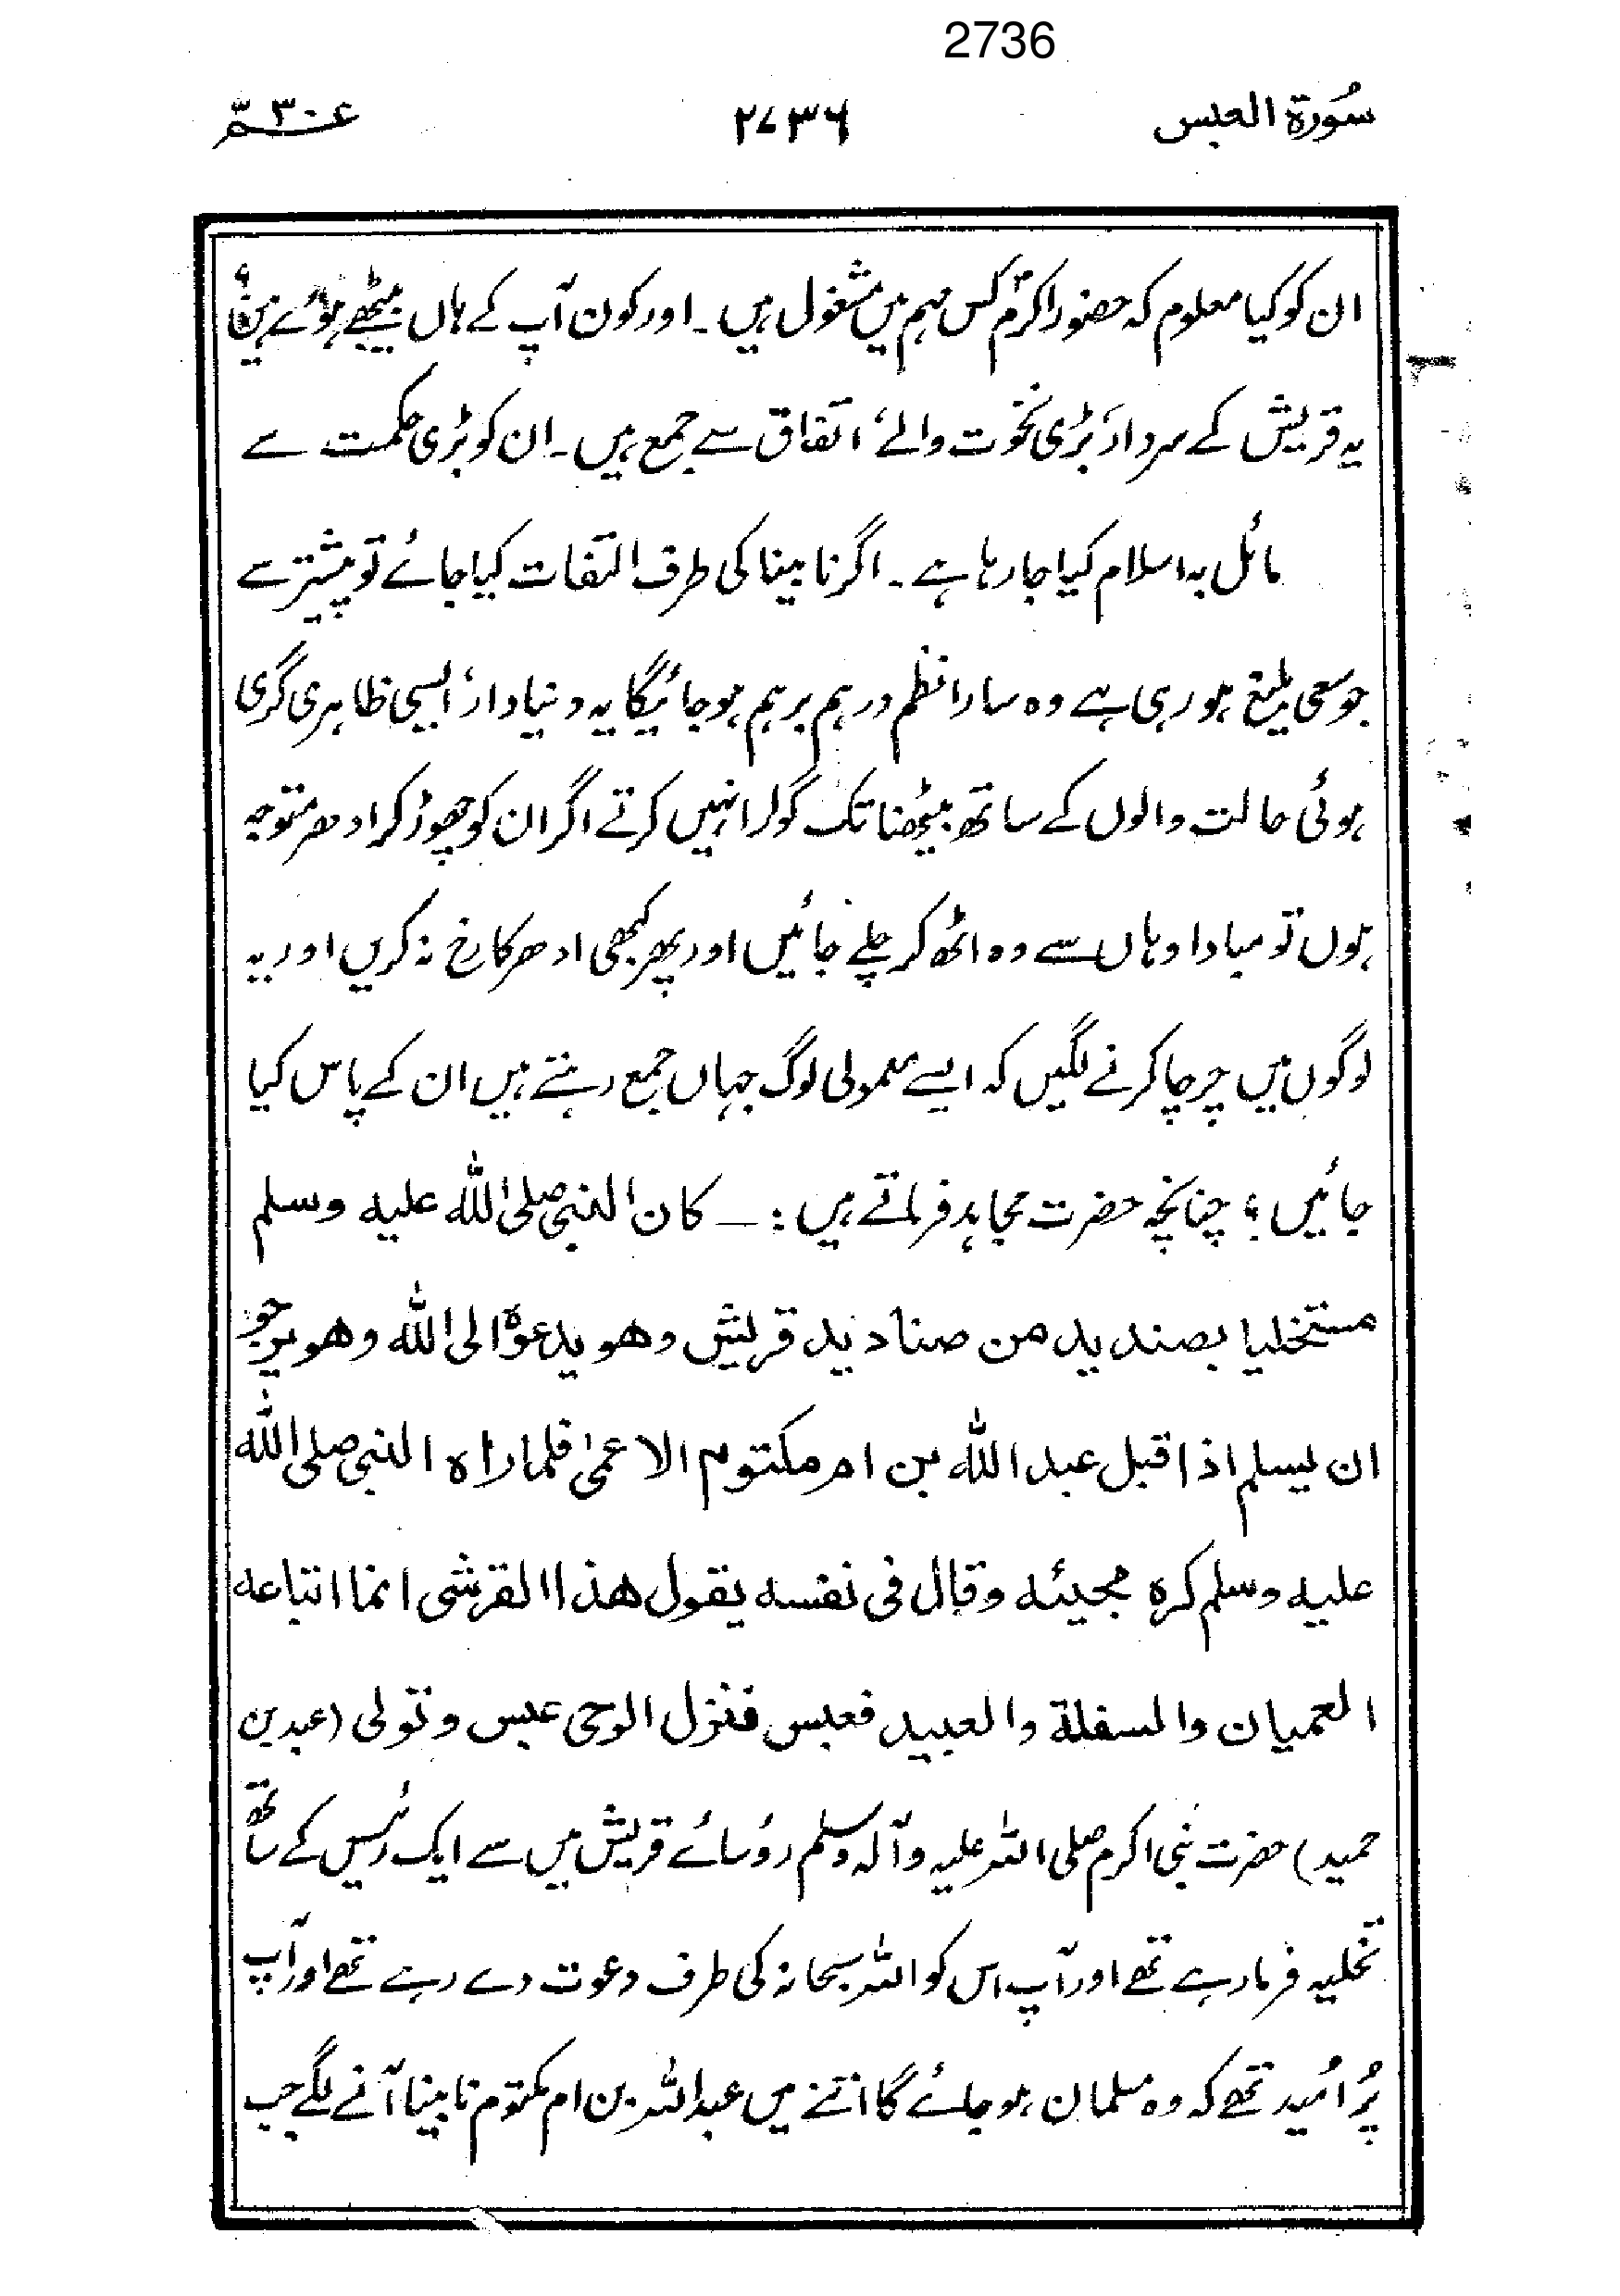 2736
سُورۃ العبس ۲۷۳۶ عـمّ ۳۰
ان کو کیا معلوم کہ حضور اکرمؐ کس مہم میں مشغول ہیں۔ اور کون آپ کے ہاں بیٹھے ہوئے ہیں؟
یہ قریش کے سردار، بڑی نخوت والے، اتفاق سے جمع ہیں۔ ان کو بڑی حکمت سے
مائل بہ اسلام کیا جا رہا ہے۔ اگر نابینا کی طرف التفات کیا جائے تو پیشتر سے
جو سعی بلیغ ہو رہی ہے وہ سارا نظم درہم برہم ہو جائیگا یہ دنیا دار، ایسی ظاہری گری
ہوئی حالت والوں کے ساتھ بیٹھنا تک گوارا نہیں کرتے اگر ان کو چھوڑ کر ادھر متوجہ
ہوں تو مبادا وہاں سے وہ اٹھ کر چلے جائیں اور پھر کبھی ادھر کا رخ نہ کریں اور یہ
لوگوں میں چرچا کرنے لگیں کہ ایسے معمولی لوگ جہاں جمع رہتے ہیں ان کے پاس کیا
جائیں؟ چنانچہ حضرت مجاہد فرماتے ہیں :ـــ کان النبی صلی اللہ علیہ وسلم
مستخلیا بصندید من صنادید قریش وھو یدعوہ الی اللہ وھو یرجو
ان یسلم اذ اقبل عبد اللہ بن ام مکتوم الاعمیٰ فلما راہ النبی صلی اللہ
علیہ وسلم کرہ مجیئہ وقال فی نفسہ یقول ھذا القرشی انما اتباعہ
العمیان والسفلۃ والعبید فعبس فنزل الوحی عبس وتولی (عبد بن
حمید) حضرت نبی اکرم صلی اللہ علیہ وآلہ وسلم رؤسائے قریش میں سے ایک رئیس کے ساتھ
تخلیہ فرما رہے تھے اور آپ اس کو اللہ سبحانہ کی طرف دعوت دے رہے تھے اور آپ
پُر امُید تھے کہ وہ مسلمان ہو جائے گا اتنے میں عبد اللہ بن ام مکتوم نابینا آنے لگے جب